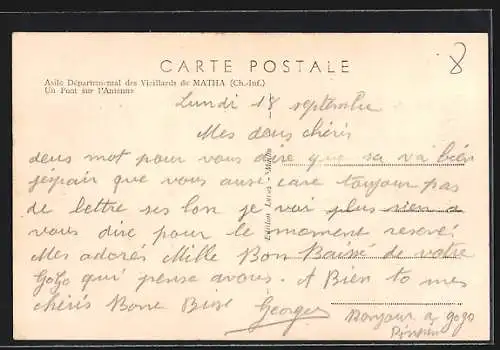 CARTE POSTALE
Asile Départemental des Vieillards de MATHA (Ch.-Inf.)
Un Pont sur l'Antenne
8
Lundi 18 septembre
Mes deus chéris
deus mot pour vous dire que sa va bien
jéspair que vous ausi care toujour pas
de lettre ses bon je vai plus rien a
vous dire pour le moment resevé
Mes adorés Mille Bon Baissé de votre
gogo qui pense avous. A Bien to mes
chéris Bone Bise Georges
Bonjour a gogo
Edition Lucas - Matha